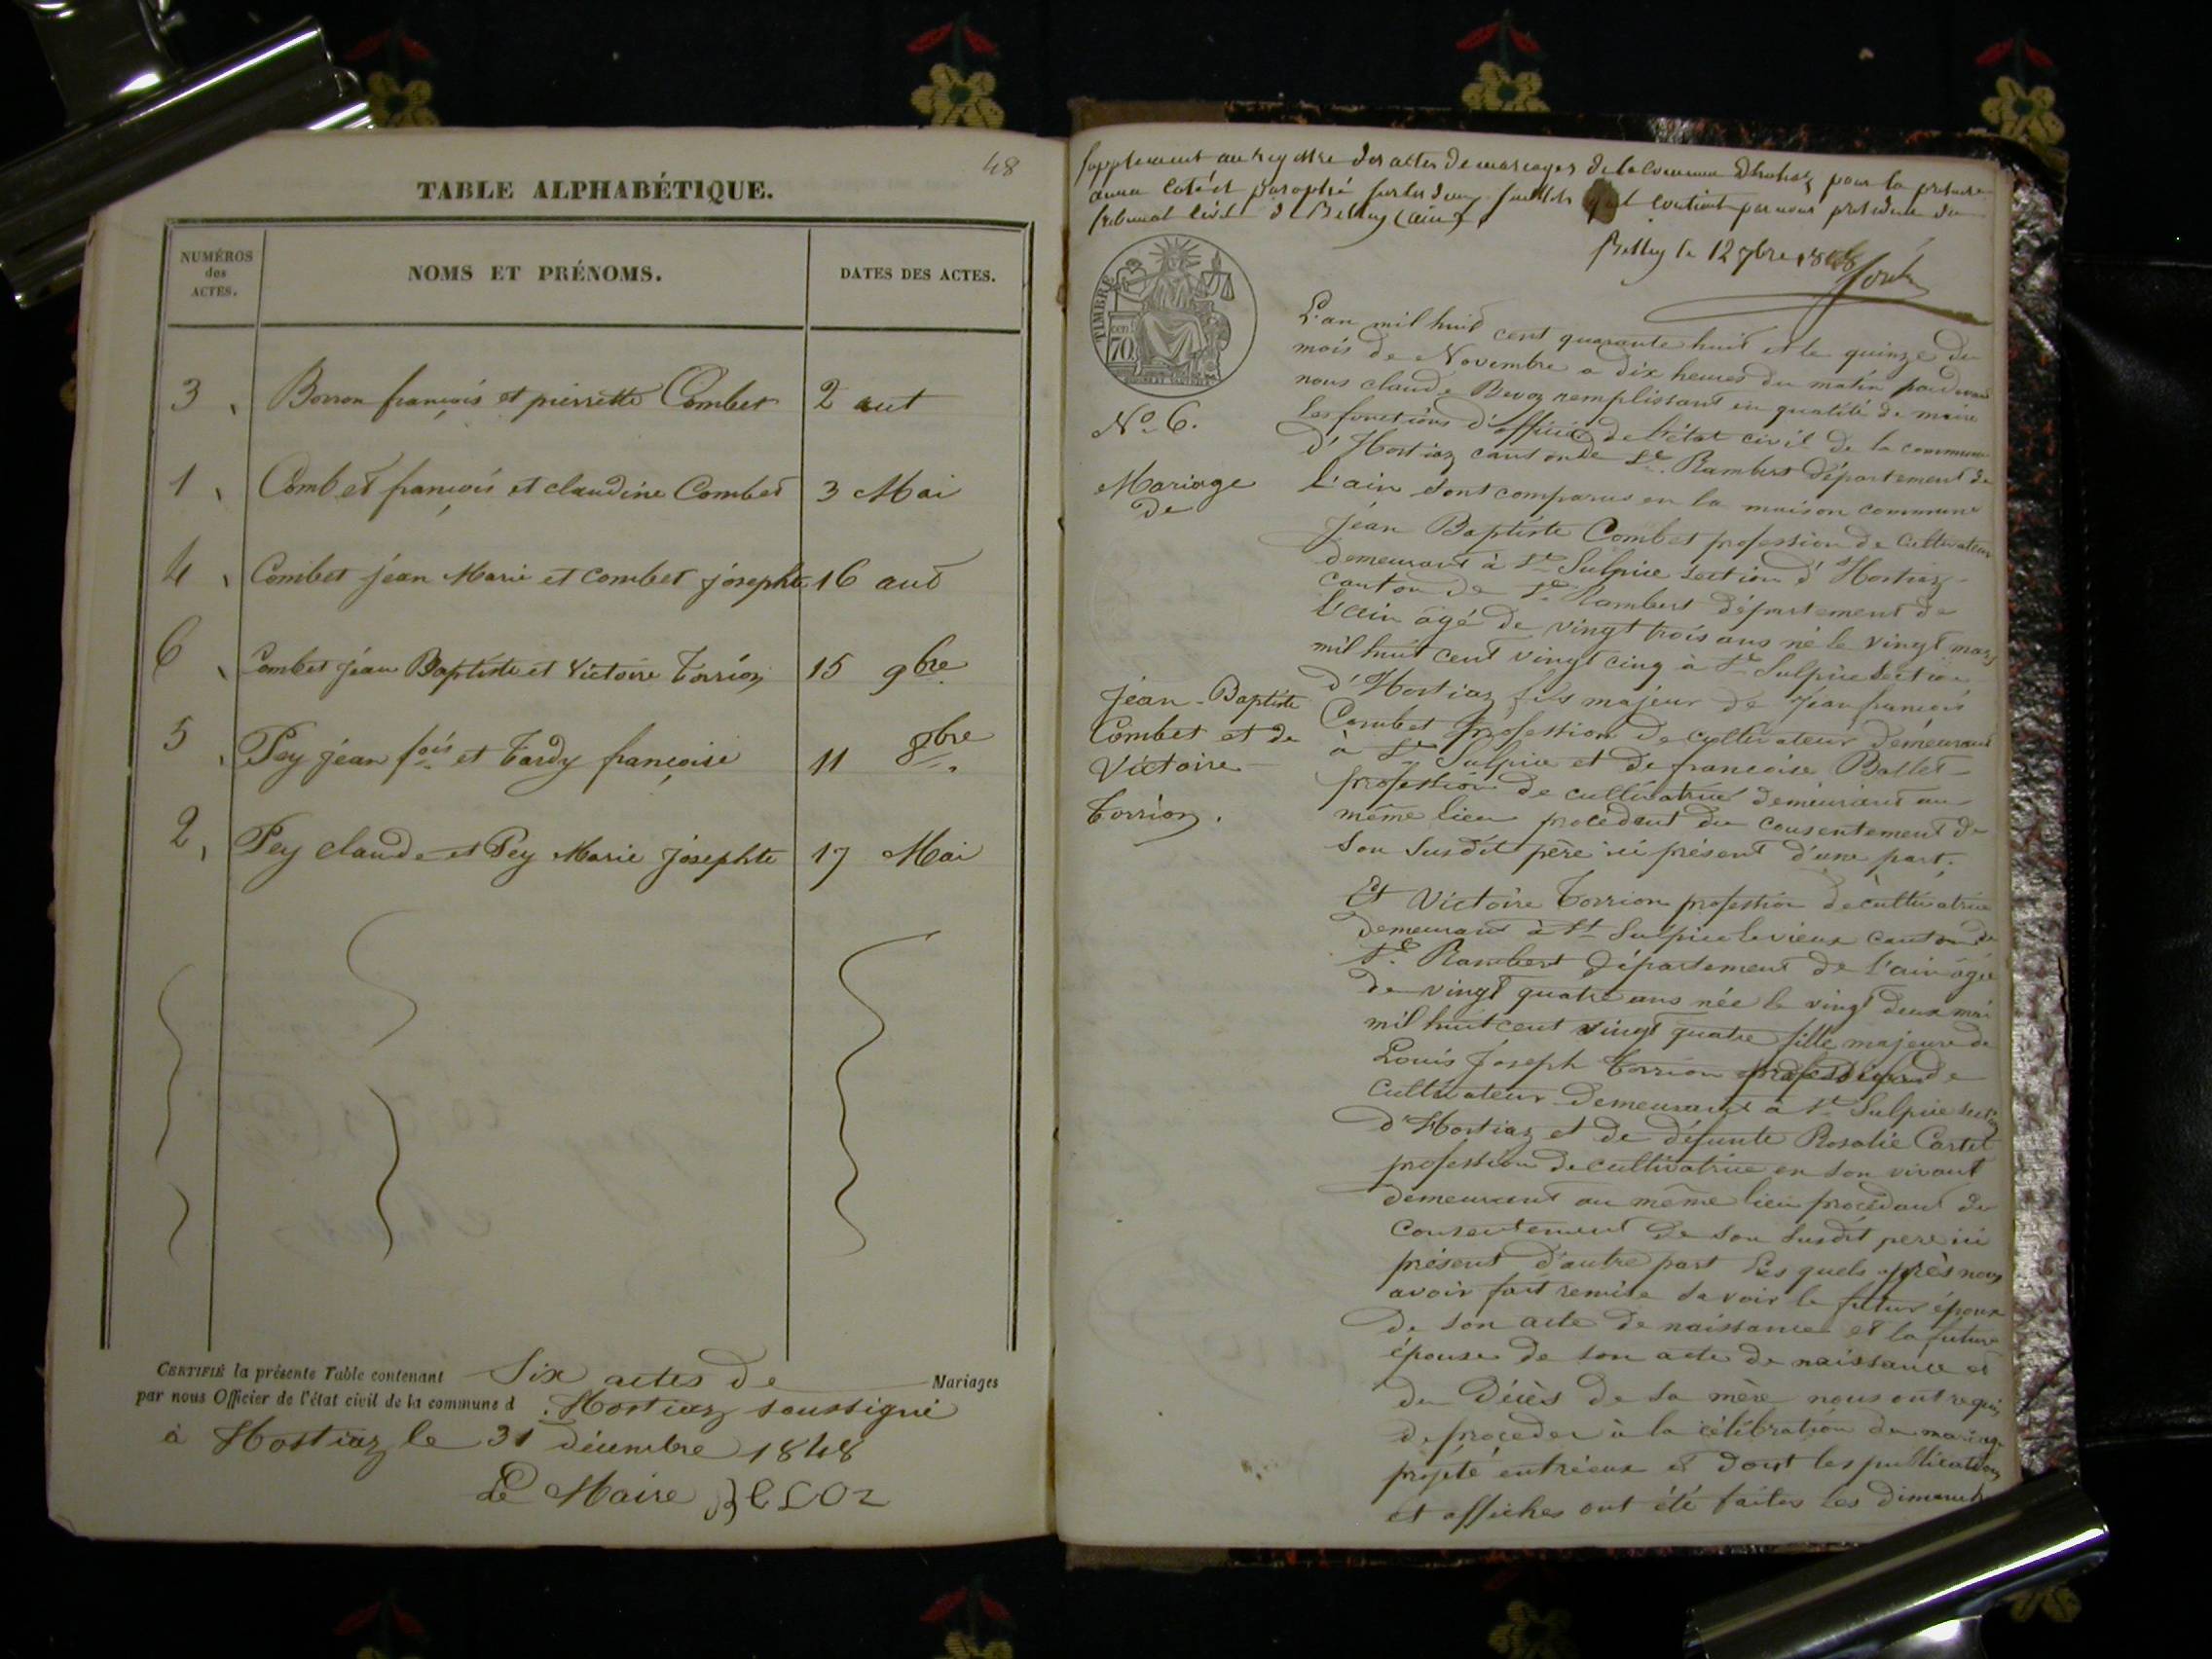 48
TABLE ALPHABÉTIQUE.
NUMÉROS des ACTES.
NOMS ET PRÉNOMS.
DATES DES ACTES.
3, Borron françois et pierrette Combet 2 aut
1, Combet françois et claudine Combet 3 Mai
4, Combet jean Marie et Combet josephte 16 aut
6, Combet jean Baptiste et Victoire Torrion 15 9bre
5, Pey jean fois et Tardy françoise 11 8bre.
2, Pey claude et Pey Marie josephte 17 Mai
CERTIFIÉ la présente Table contenant Six actes de Mariages
par nous Officier de l'état civil de la commune d'Hostiaz soussigné
à Hostiaz le 31 décembre 1848
Le Maire BEVOZ
Supplement au registre des actes de mariages de la commune d'hostiaz pour la présente
année coté et paraphé sur les deux feuillets qu'il contient par nous président du
tribunal civil de Belley (ain)
Belley le 12 9bre 1848
TIMBRE
70
No. 6.
Mariage
de
Jean-Baptiste
Combet et de
Victoire
Torrion.
L'an mil huit cent quarante huit et le quinze du
mois de Novembre a dix heures du matin pardevant
nous claude Bevoz remplissant en qualité de maire
les fonctions d'officier de l'état civil de la commune
d'Hostiaz canton de St. Rambert département de
l'ain sont comparus en la maison commune
Jean Baptiste Combet profession de cultivateur
demeurant à St Sulpice section d'Hostiaz
canton de St. Rambert département de
l'ain âgé de vingt trois ans né le vingt mars
mil huit cent vingt cinq à St Sulpice section
d'Hostiaz fils majeur de Jean françois
Combet profession de cultivateur demeurant
à St Sulpice et de françoise Ballet
profession de cultivatrice demeurant au
même lieu procédent du consentement de
son susdit père ici présent d'une part.
Et Victoire Torrion profession de cultivatrice
demeurant à St Sulpice le vieux canton de
St. Rambert département de l'ain âgée
de vingt quatre ans née le vingt deux mai
mil huit cent vingt quatre fille majeure de
Louis Joseph Torrion profession de
cultivateur demeurant à St Sulpice section
d'Hostiaz et de défunte Rosalie Cartet
profession de cultivatrice en son vivant
demeurant au même lieu procédant du
consentement de son susdit pere ici
présent d'autre part Les quels après nous
avoir fait remise savoir le futur époux
de son acte de naissance et la future
épouse de son acte de naissance et
du Décès de sa mère nous ont requis
de procéder à la célébration du mariage
projeté entréeux et dont les publications
et affiches ont été faites les dimanche